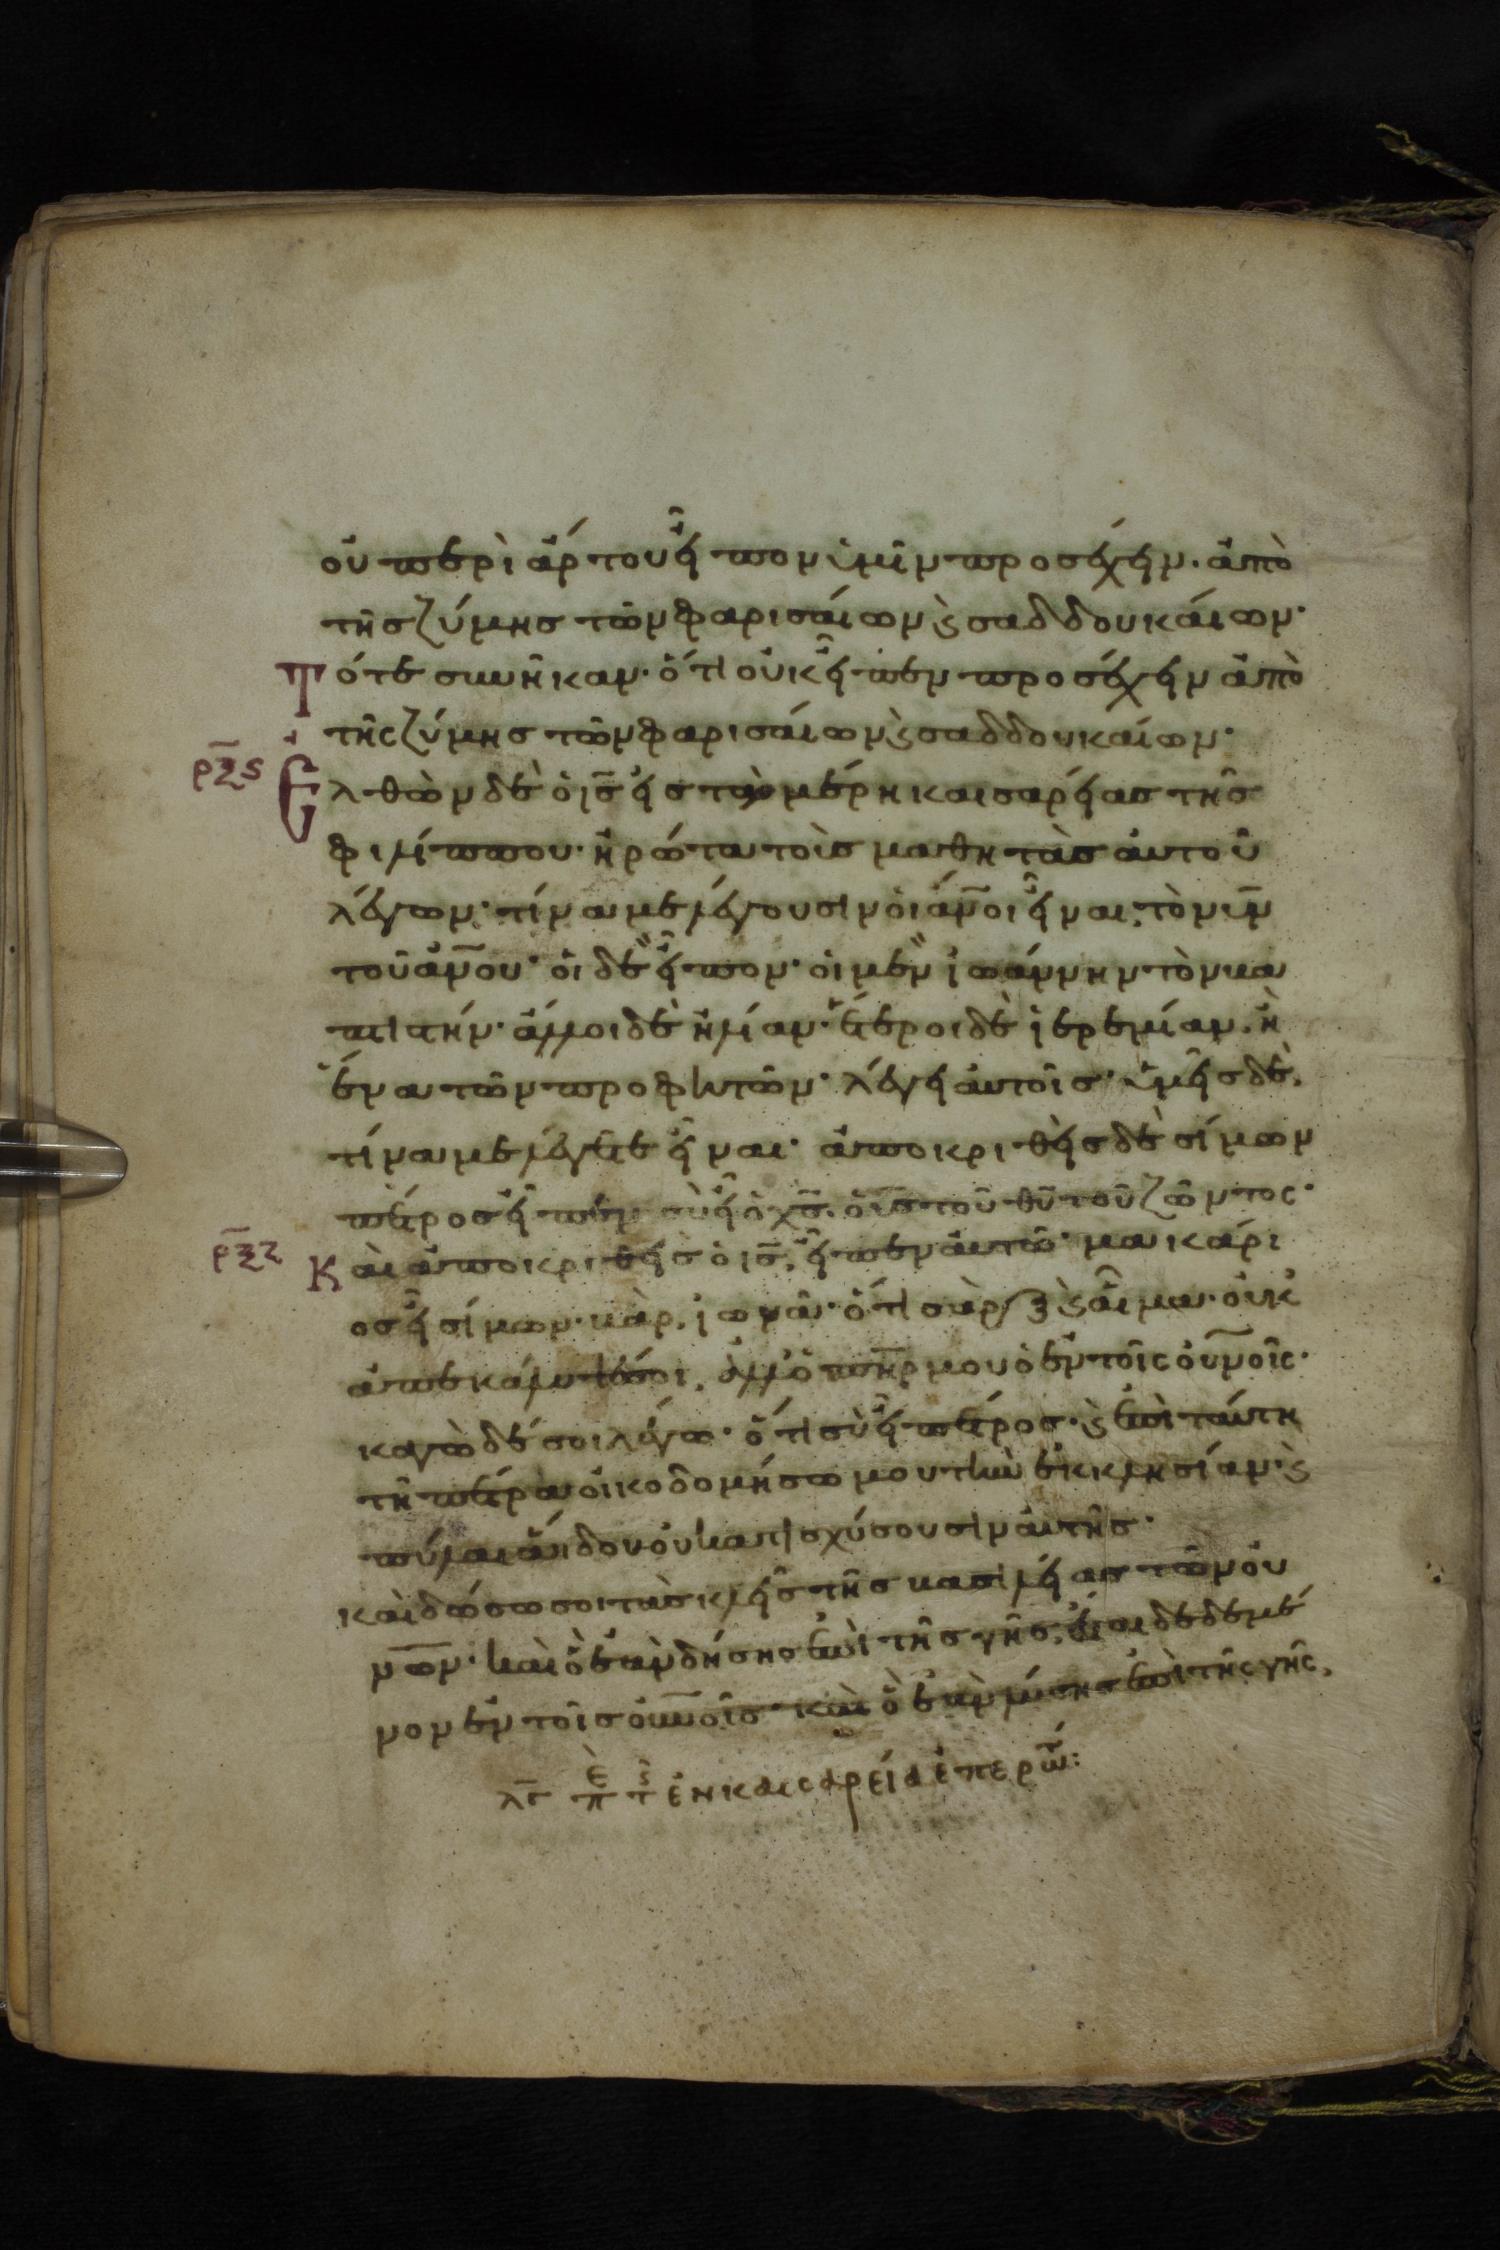 οὐ περὶ ἄρτου εἶπον ὑμῖν προσέχειν· ἀπὸ
τῆς ζύμης τῶν φαρισαίων ϗ σαδδουκαίων·
Τότε συνῆκαν· ὅτι οὐκ εἶπεν προσέχειν ἀπὸ
τῆς ζύμης τῶν φαρισαίων ϗ σαδδουκαίων·
ρϟϛ Ἐλθὼν δὲ ὁ ις̅ εἰς τὰ μέρη καισαρείας τῆς
φιλίππου· ἠρώτα τοὺς μαθητὰς αὐτοῦ
λέγων· τίνα με λέγουσιν οἱ ἄν̅οι εἶναι, τὸν υν̅
τοῦ ἀν̅ου· οἱ δὲ εἶπον· οἱ μὲν ἰωάννην τὸν βα
πτιστήν· ἄλλοι δὲ ἠλίαν· ἕτεροι δὲ ἱερεμίαν· ἢ
ἕνα τῶν προφητῶν· λέγει αὐτοῖς· ὑμεῖς δὲ,
τίνα με λέγετε εἶναι· ἀποκριθεὶς δὲ σίμων
πέτρος εἶπεν σὺ εἶ ὁ χς̅. ὁ υς̅ τοῦ θυ̅ τοῦ ζῶντος·
ρϟζ Καὶ ἀποκριθεὶς ὁ ις̅, εἶπεν αὐτῶ· μακάρι
ος εἶ σίμων· βὰρ, ἰωνᾶ· ὅτι σὰρξ ϗ αἷμα· οὐκ
ἀπεκάλυψέ σοι, ἀλλ' ὁ πη̅ρ μου ὁ ἐν τοῖς οὐν̅οῖς·
κἀγὼ δέ σοι λέγω· ὅτι σὺ εἶ πέτρος· ϗ ἐπὶ ταύτη
τῆ πέτρα οἰκοδομήσω μου τὴν ἐκκλησίαν· ϗ
πύλαι ἅιδου οὐ κατισχύσουσιν αὐτῆς·
καὶ δώσω σοι τὰς κλεῖς τῆς βασιλείας τῶν οὐ
ν̅ων· καὶ ὃ ἐὰν δήσης ἐπὶ τῆς γῆς, ἔσται δεδεμέ
νον ἐν τοῖς οὐνοῖς· καὶ ὃ ἐὰν λύσης ἐπὶ τῆς γῆς,
λγ πε τς ἐν καισαρεία ἐπερώτ: